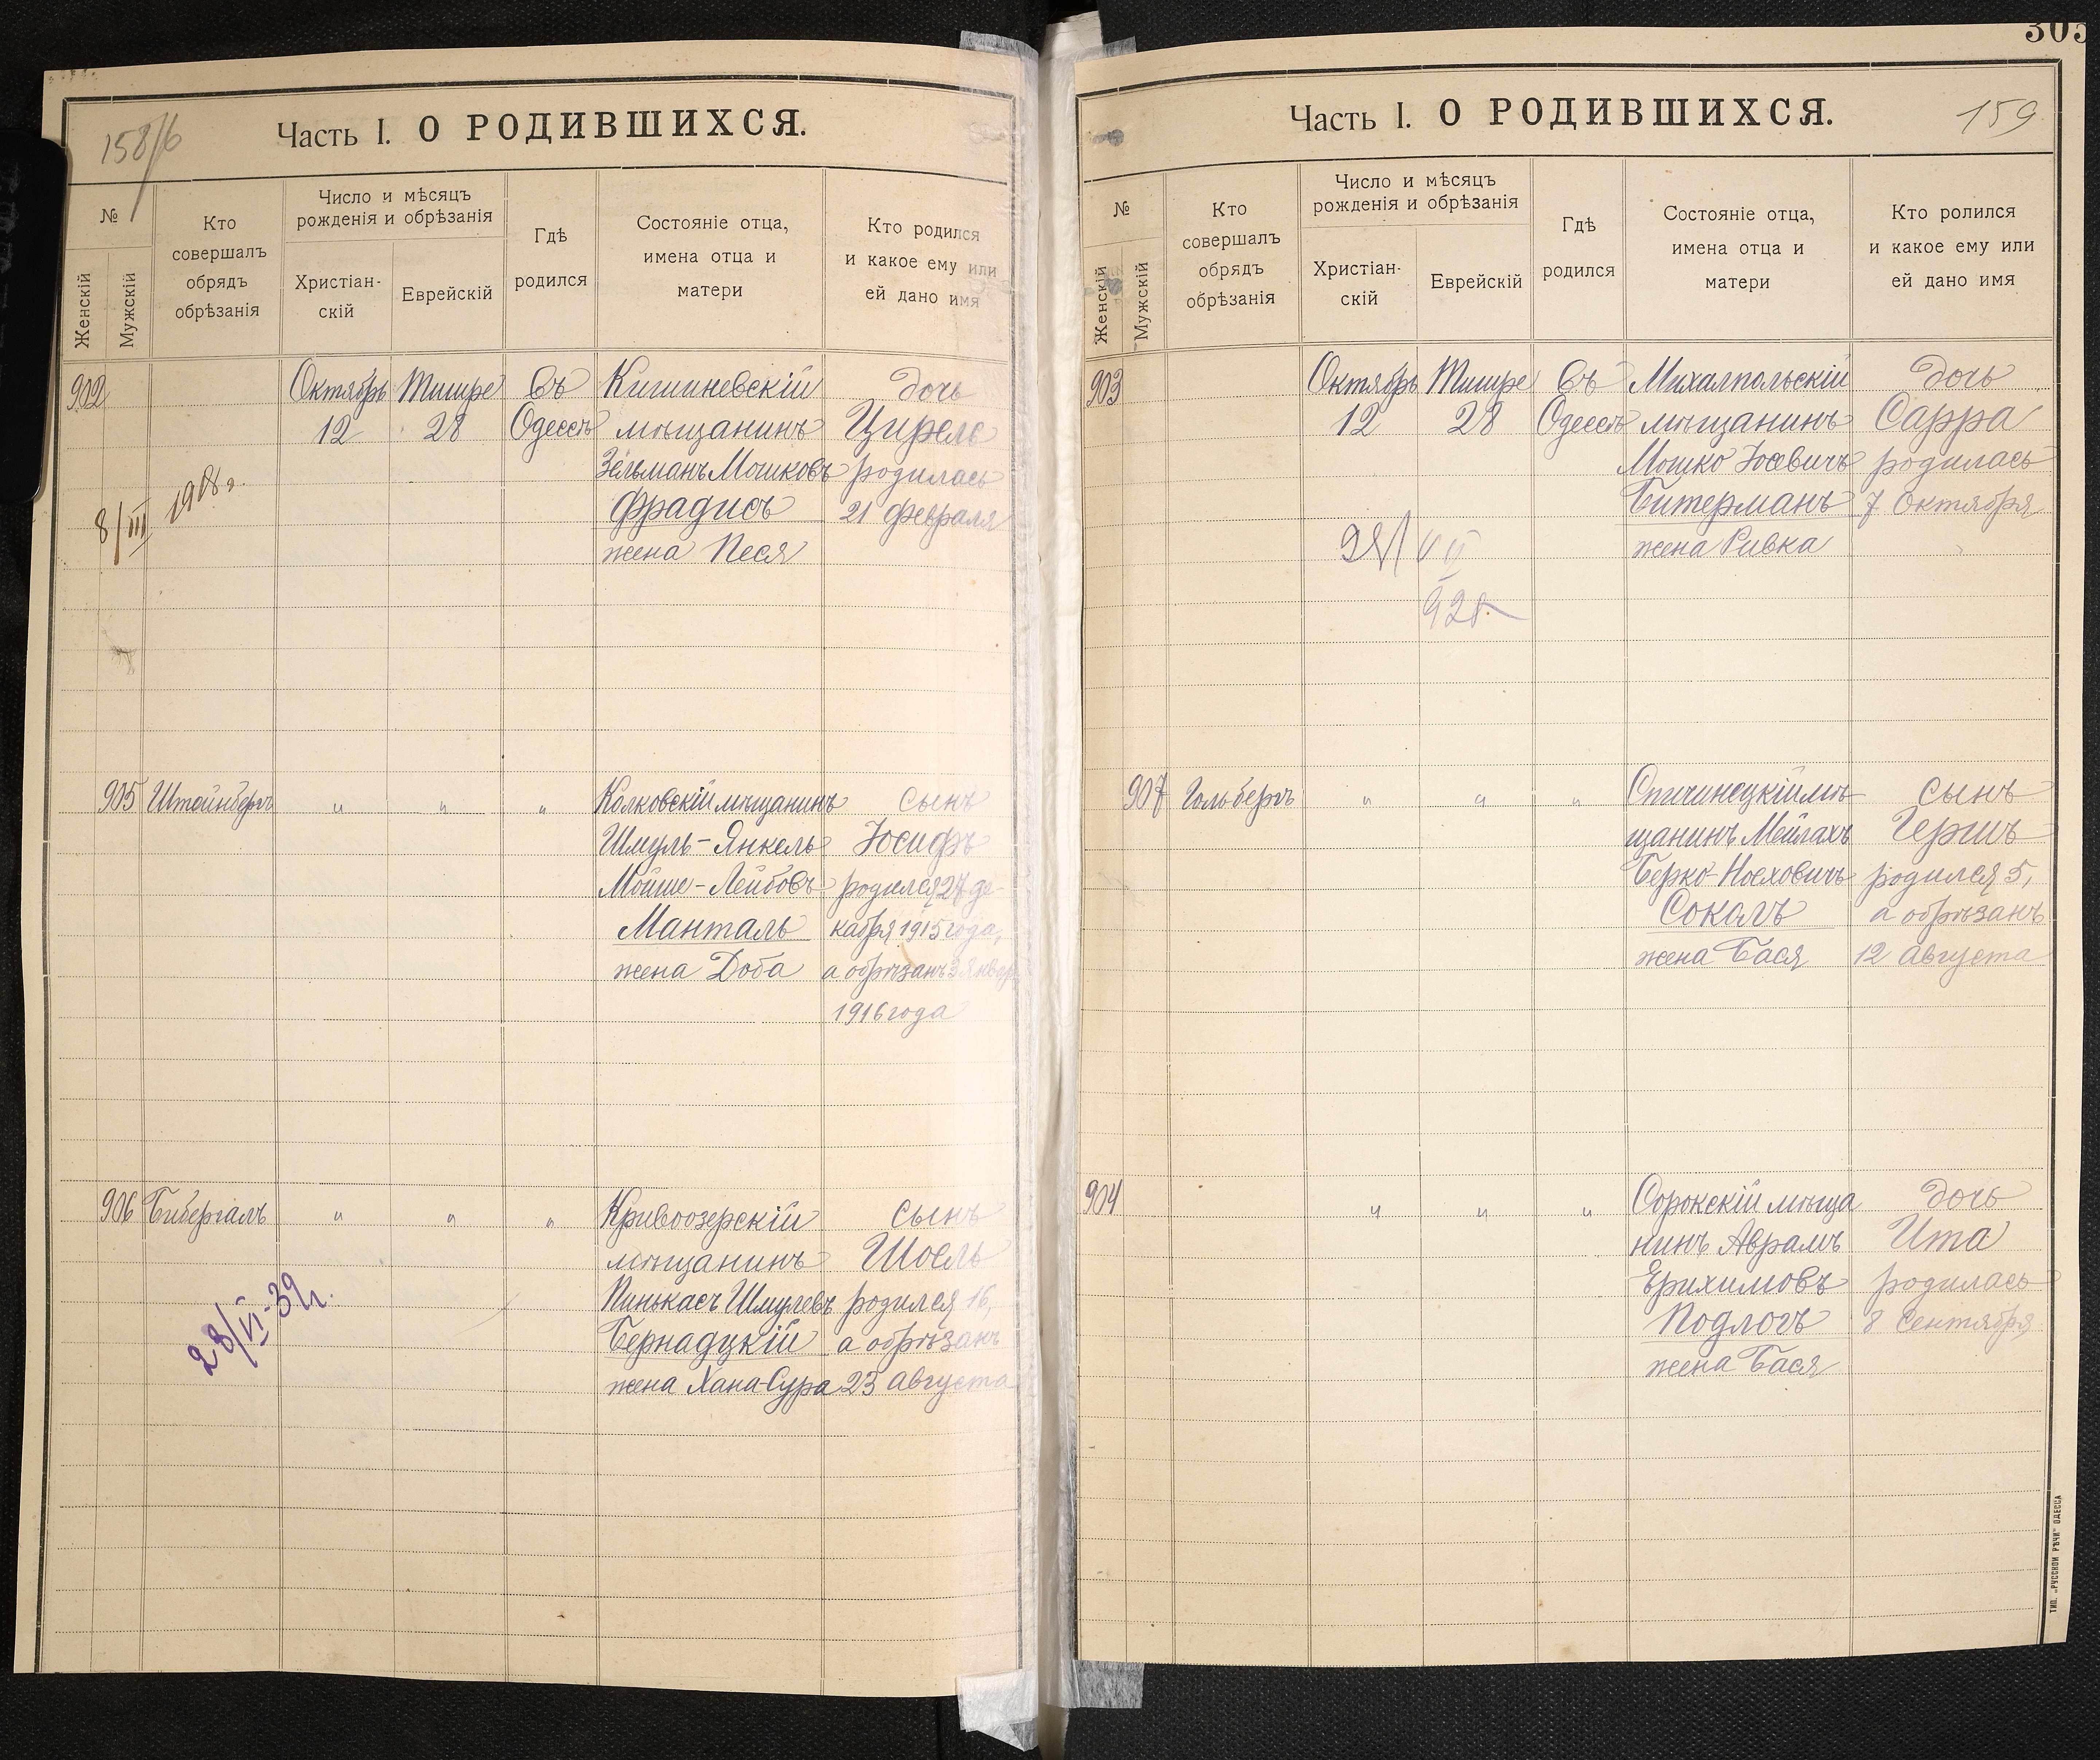 158/б
Часть I. О РОДИВШИХСЯ.
№
Женскій
Мужскій
Кто
совершалъ
обрядъ
обрѣзанія
Число и мѣсяцъ
рожденія и обрѣзанія
Христіан-
скій
Еврейскій
Гдѣ
родился
Состояніе отца,
имена отца и
матери
Кто родился
и какое ему или
ей дано имя
902
Октябрь
12
Тишре
28
Въ
Одессѣ
Кишиневскій
мѣщанинъ
Зельманъ Мошковъ
Фрадисъ
жена Песя
дочь
Цирель
родилась
21 февраля
8/III 1918 г.
905
Штейнбергъ
"
"
"
Колковскій мѣщанинъ
Шмуль-Янкель
Мойше-Лейбовъ
Манталь
жена Доба
сынъ
Іосифъ
родился 27 де-
кабря 1915 года,
а обрѣзанъ 3 Января
1916 года
906
Бибергалъ
"
"
"
Кривоозерскій
мѣщанинъ
Пинькасъ Шмулевъ
Бернадукій
жена Хана-Сура
сынъ
Шоель
родился 16,
а обрѣзанъ
23 Августа
28/VI-39г.
305
Часть I. О РОДИВШИХСЯ.
159
№
Женскій
Мужскій
Кто
совершалъ
обрядъ
обрѣзанія
Число и мѣсяцъ
рожденія и обрѣзанія
Христіан-
скій
Еврейскій
Гдѣ
родился
Состояніе отца,
имена отца и
матери
Кто ролился
и какое ему или
ей дано имя
903
Октябрь
12
Тишре
28
Въ
Одессѣ
Михалпольскій
мѣщанинъ
Мошко Іосевичъ
Битерманъ
жена Ривка
дочь
Сарра
родилась
7 Октября
928
907
Гольбергъ
"
"
"
Спичинецкій мѣ-
щанинъ Мейлахъ
Берко Носховичъ
Соколъ
жена Бася
сынъ
Гершъ
родился 5,
а обрѣзанъ
12 Августа
904
"
"
"
Сорокскій мѣща
нинъ Аврамъ
Ерихимовъ
Подлогъ
жена Бася
дочь
Ита
родилась
8 Сентября
ТИП. „РУССКОЙ РѢЧИ" ОДЕССА